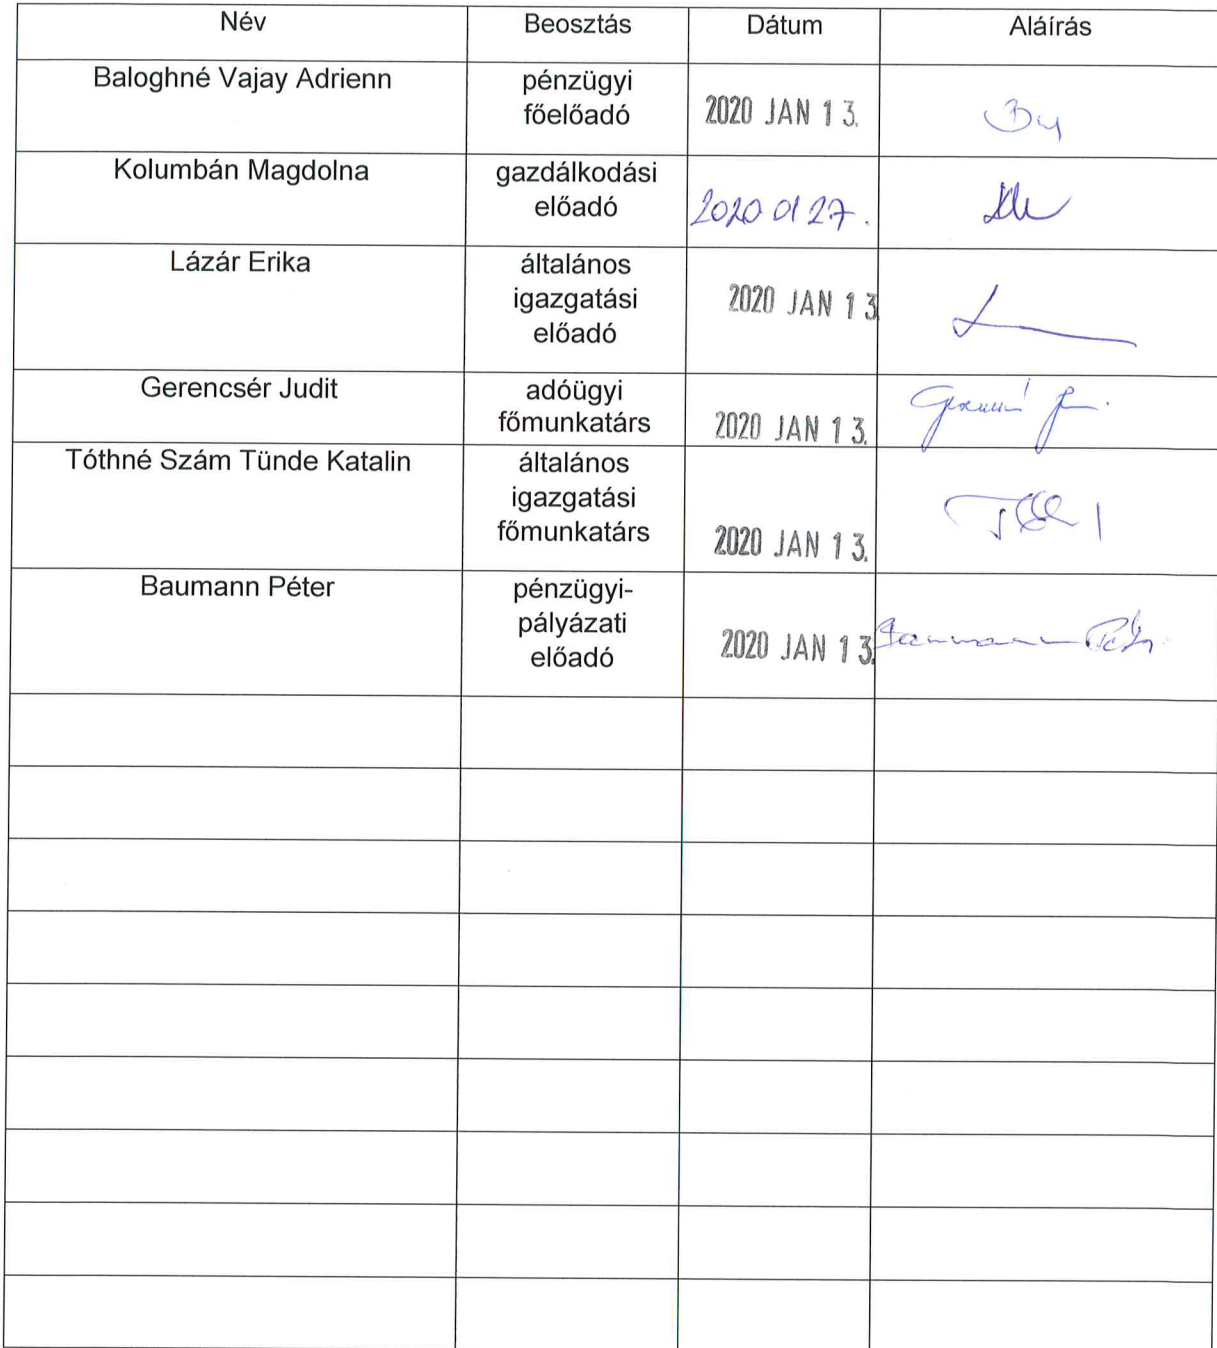 Név Beosztás Dátum Aláírás
Baloghné Vajay Adrienn pénzügyi
főelőadó 2020 JAN 13.
Kolumbán Magdolna gazdálkodási
előadó 2020 01 27.
Lázár Erika általános
igazgatási 2020 JAN 13
előadó
Gerencsér Judit adóügyi
főmunkatárs 2020 JAN 13.
Tóthné Szám Tünde Katalin általános
igazgatási
főmunkatárs 2020 JAN 13.
Baumann Péter pénzügyi-
pályázati
előadó 2020 JAN 13. Baumann Péter